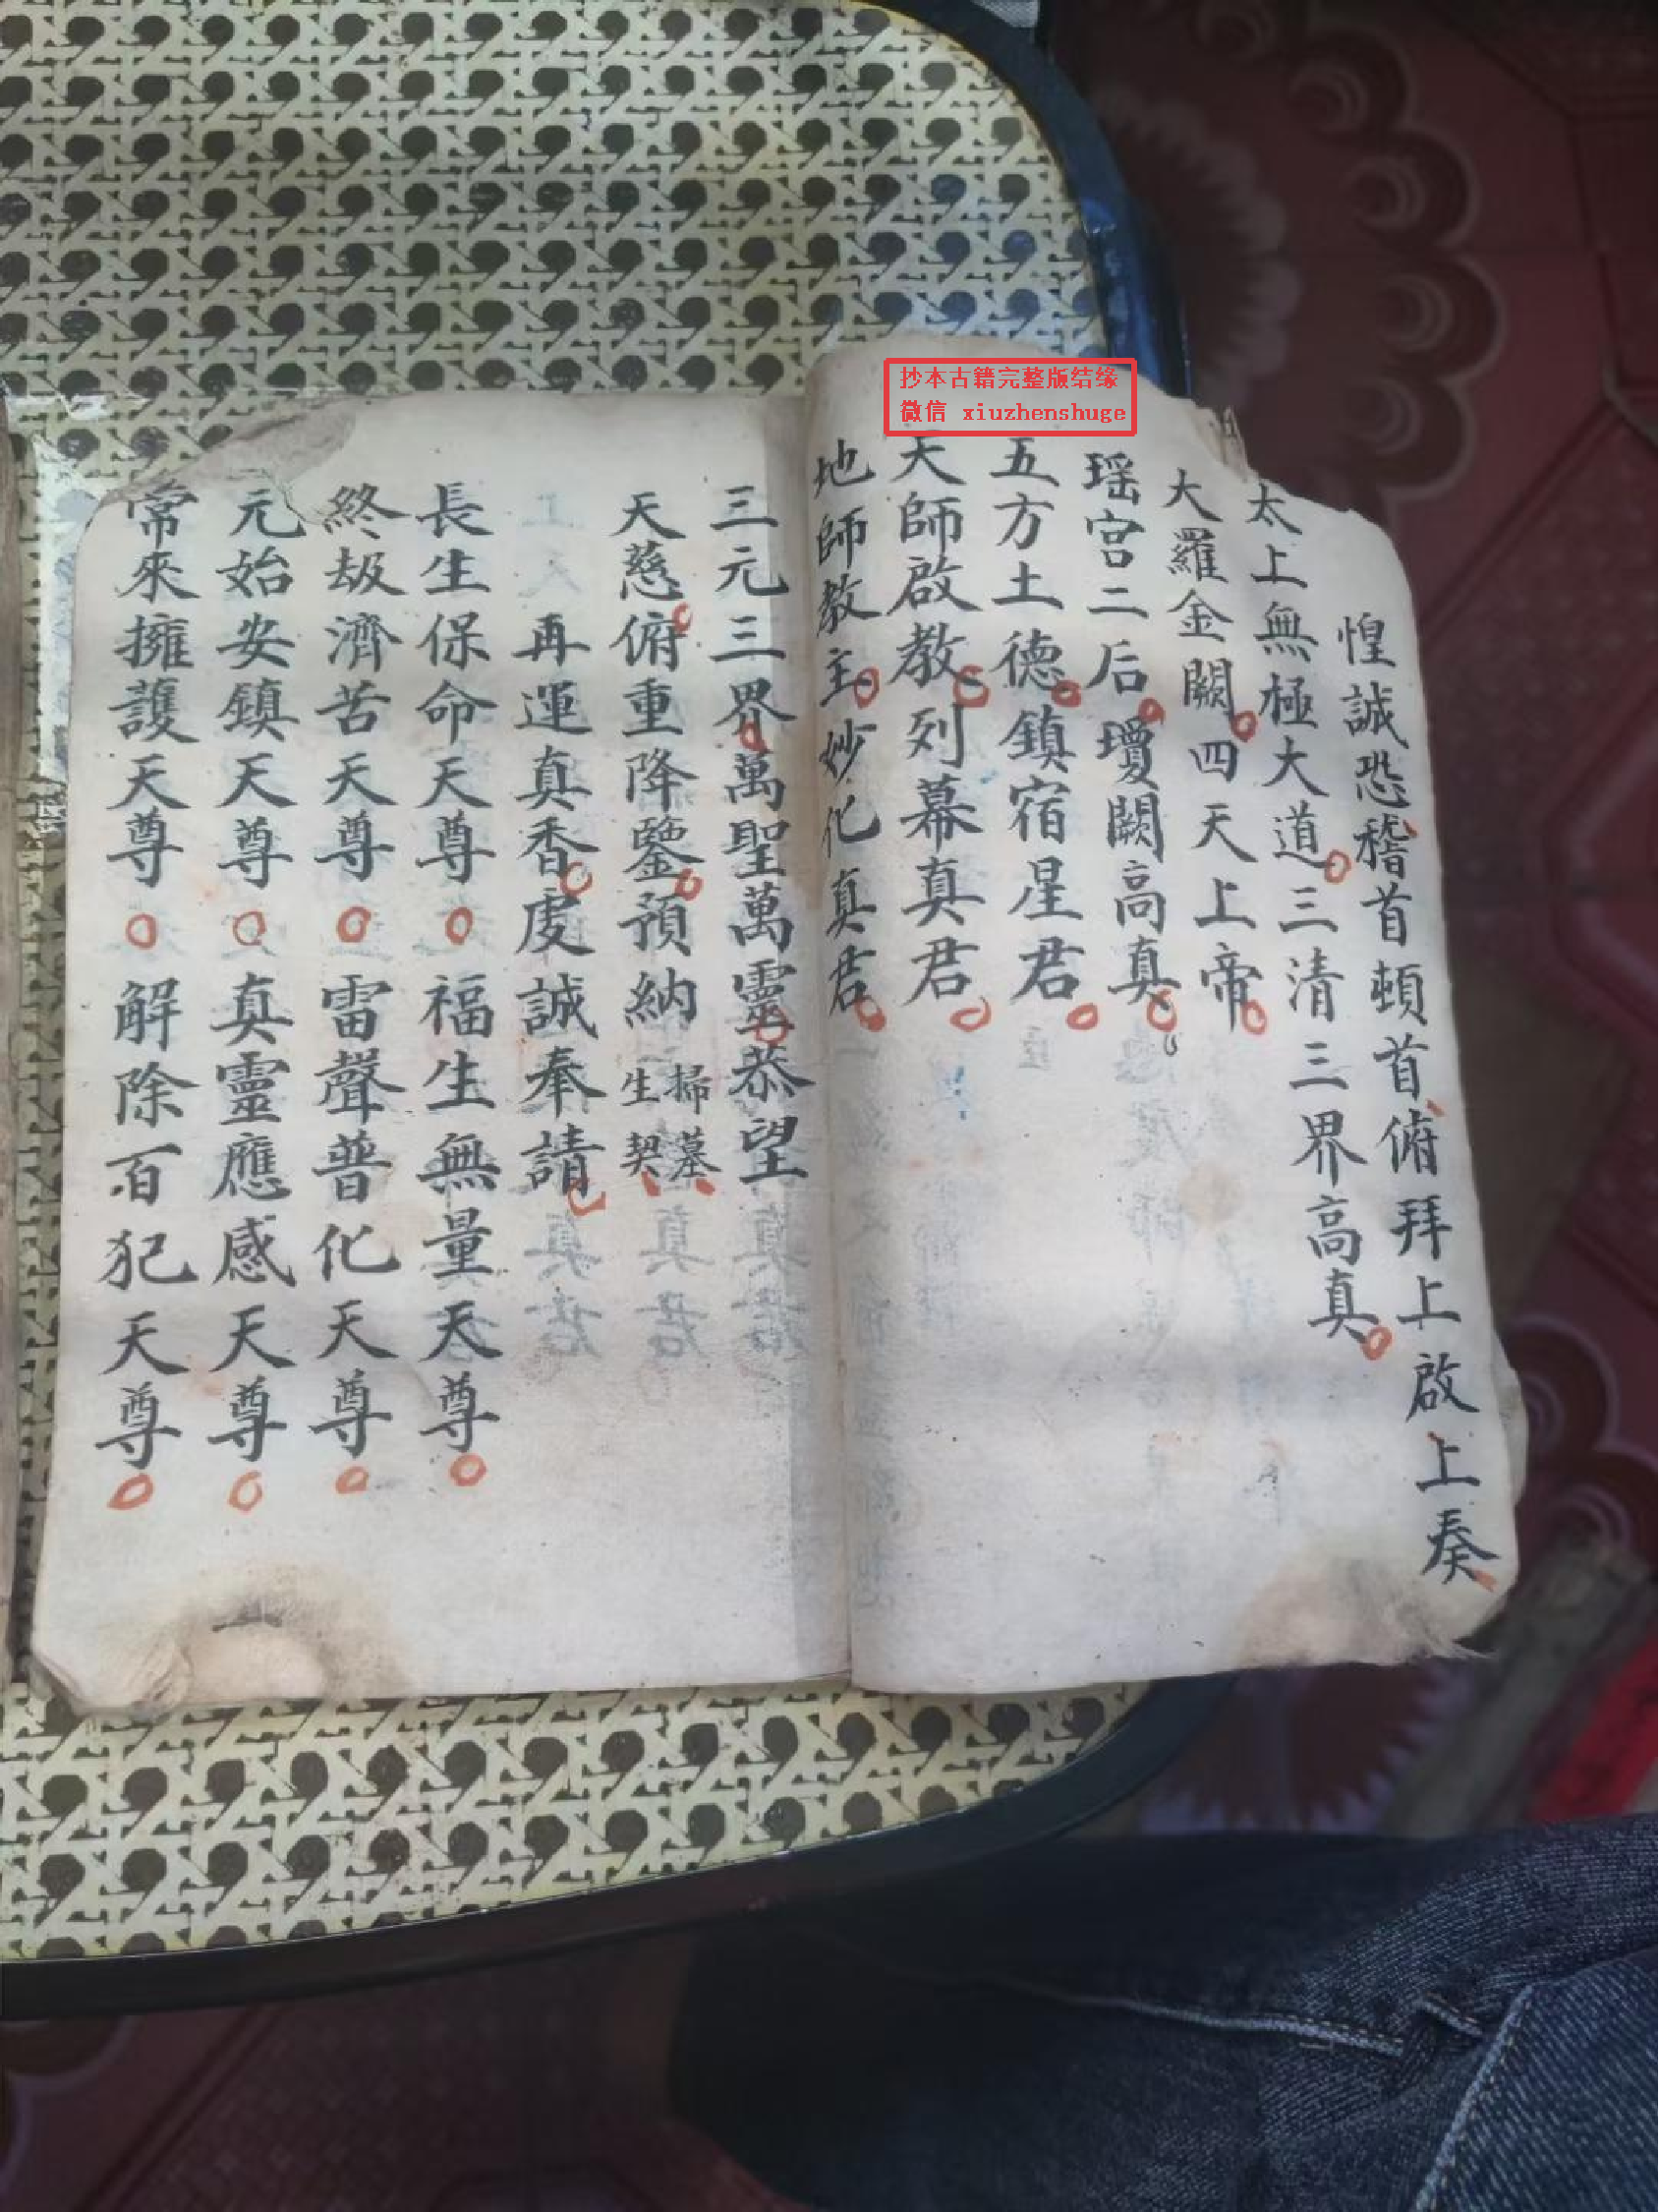 抄本古籍完整版结缘
微信 xiuzhenshuge
惶誠恐稽首頓首俯拜上啟上奏
太上無極大道三清三界高真
大羅金闕四天上帝
瑶宫二后瓊闕高真
五方土德鎮宿星君
天師啟教列幕真君
地師教主妙化真君
三元三界萬聖萬靈恭望
天慈俯重降鑒預納掃墓生契
再運真香虔誠奉請
長生保命天尊福生無量天尊
終劫濟苦天尊雷聲普化天尊
元始安鎮天尊真靈應感天尊
常來擁護天尊解除百犯天尊